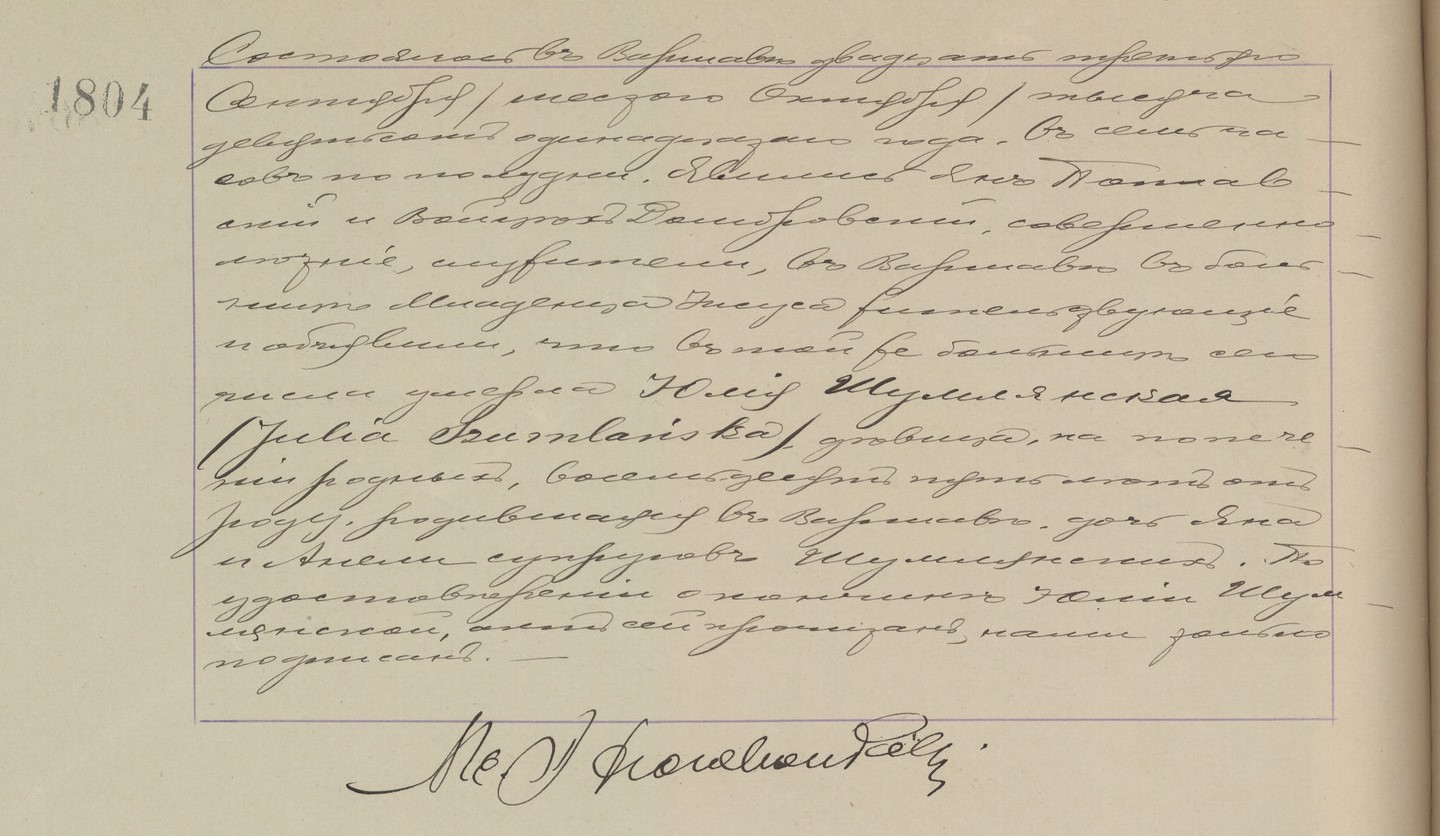 1804
Состоялось въ Варшавѣ двадцать третьяго
Сентября / шестого Октября / тысяча
девятьсотъ одинадцатаго года. Въ семь ча
совъ по полудни. Явились Янъ
скій и Войцѣхъ Домбровскій, совершенно
лѣтніе, служители, въ Варшавѣ въ боль
ницѣ Младенца Іисуса жительствующіе
и объявили, что въ той же больницѣ сего
числа умерла Юлія Шумлянская
/Julia Szumlańska/, дѣвица, на попече
ніи родныхъ, восемьдесятъ пять лѣтъ отъ
роду, родившаяся въ Варшавѣ, дочь Яна
и Анели супруговъ Шумлянскихъ. По
удостовѣреніи о кончинѣ Юліи Шум
лянской, актъ сей прочитанъ, нами только
подписанъ. —